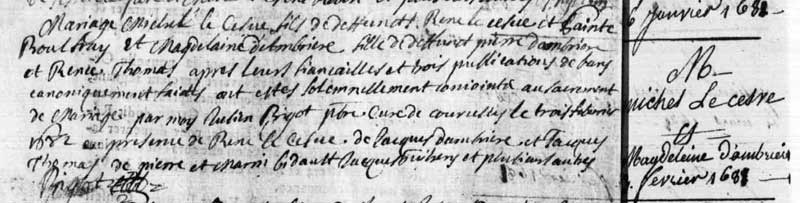 Mariage Michel le Cesve fils de deffunct René le cesve et Sainte
Boulfray et Magdelaine dambrière fille de deffunct pierre dambrion
et Renée Thomas apres leurs fiancailles et trois publications de bans
canoniquement faites ont estés solemnellement conjoints au sacrement
de Mariage par moy Julien Bigot pbre Curé de courcelles le trois febvrier
1682 en presence de René le Cesve de Jacques Dambrière et Jacques
Thomas de pierre et Marin Bidault Jacques et plusieurs aultres
Bigot
6 janvier 1682
M
michel Le cesve
et
Magdeleine d'ambrière
fevrier 1682